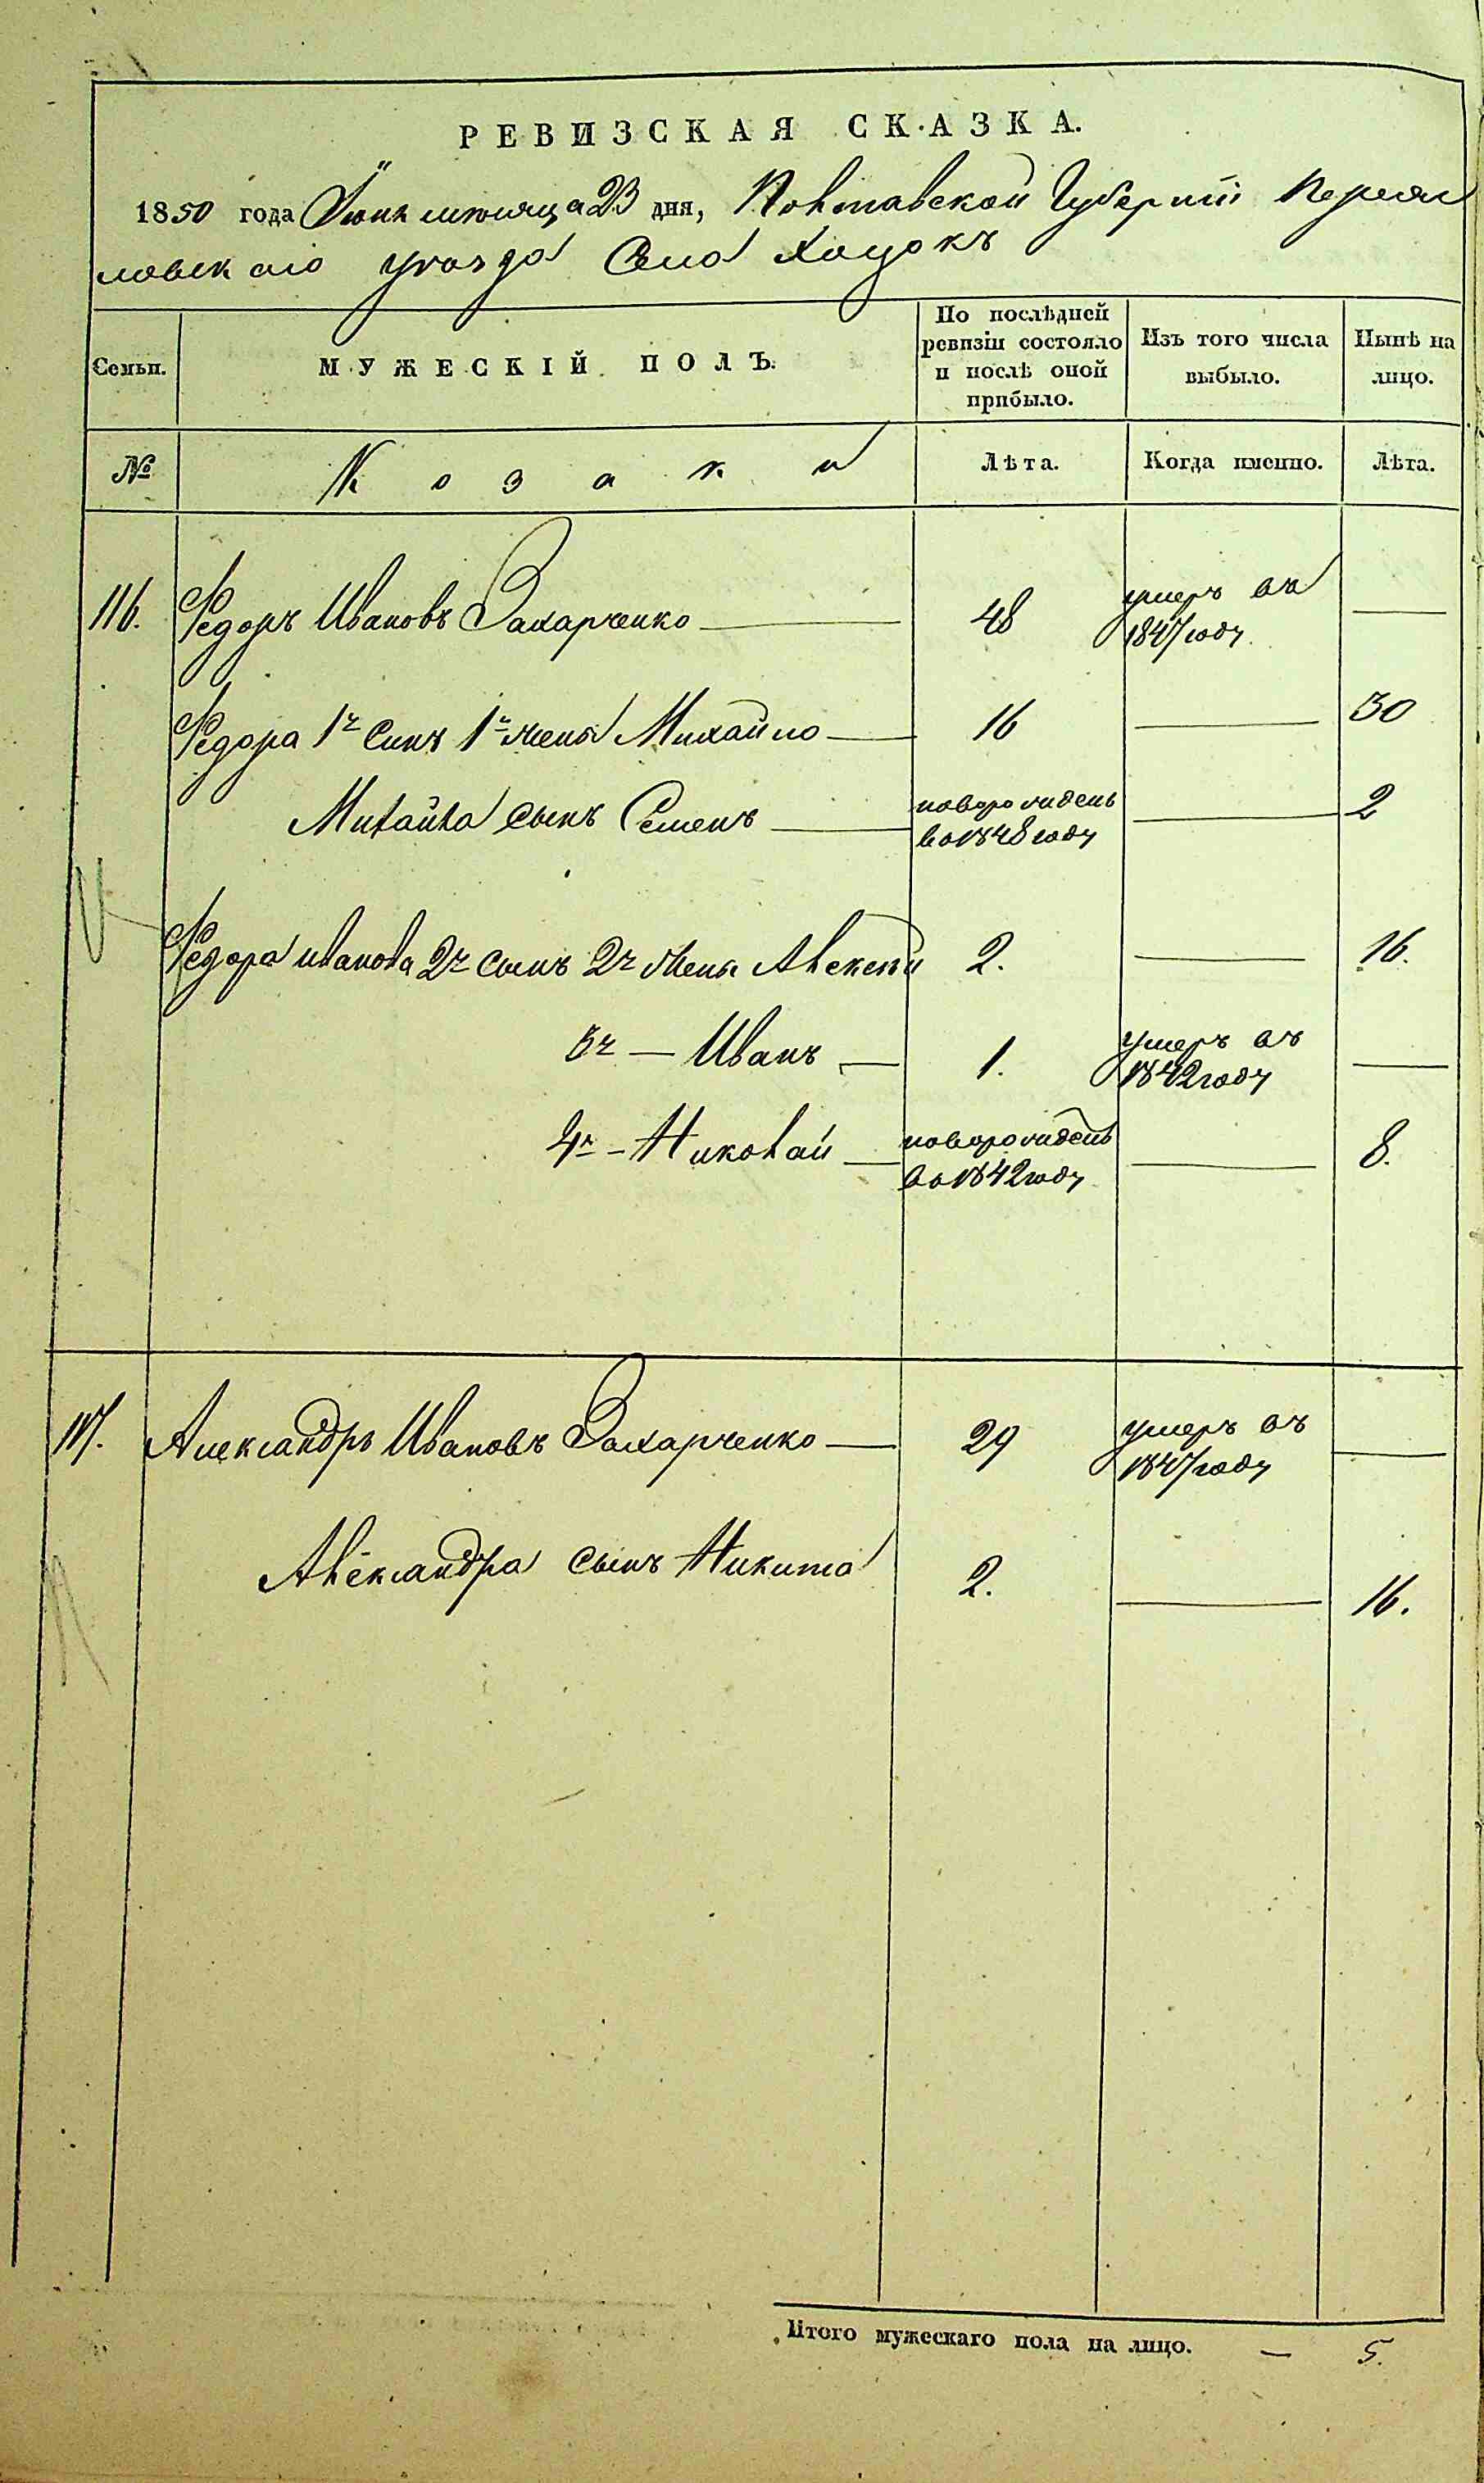 РЕВИЗСКАЯ СКАЗКА.
1850 года Іюня мѣсяца 23 дня, Полтавской Губерніи Переяс
ловскаго уезда Села Хоцокъ
Семьи.
МУЖЕСКІЙ ПОЛЪ.
По послѣдней ревизіи состояло и послѣ оной прибыло.
Изъ того числа выбыло.
Нынѣ на лицо.
№
Козаки
Лѣта.
Когда именно.
Лѣта.
116. Федоръ Ивановъ Захарченко — 48 умеръ въ 1847 году —
Федора 1й Синъ 1й жены Михайло — 16 — 30
Михайла сынъ Семенъ — новорожденъ въ 1848 году — 2
Федора иванова 2й сынъ 2й жены Алексей 2. — 16.
3й — Иванъ — 1. умеръ въ 1842 году —
4й — Николай — новорожденъ въ 1842 году — 8.
117. Александръ Ивановъ Захарченко — 29 умеръ въ 1847 году —
Александра сынъ Никита 2. — 16.
Итого мужескаго пола на лицо. — 5.